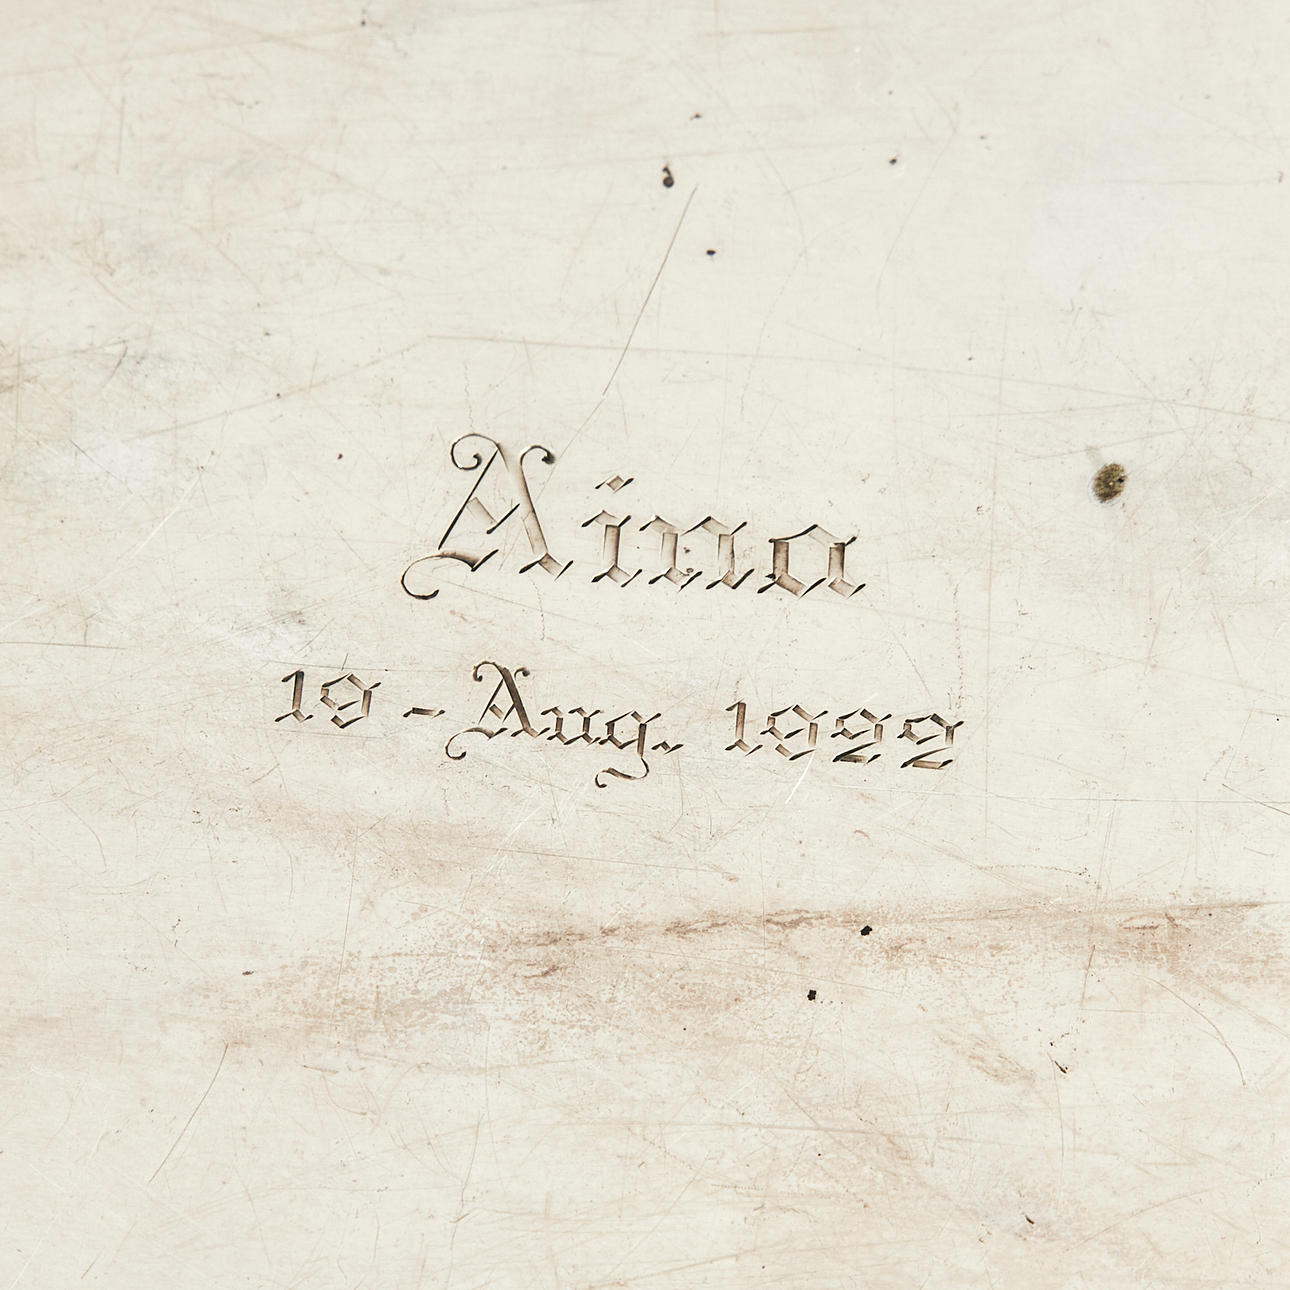 Aina
19 - Aug. 1922